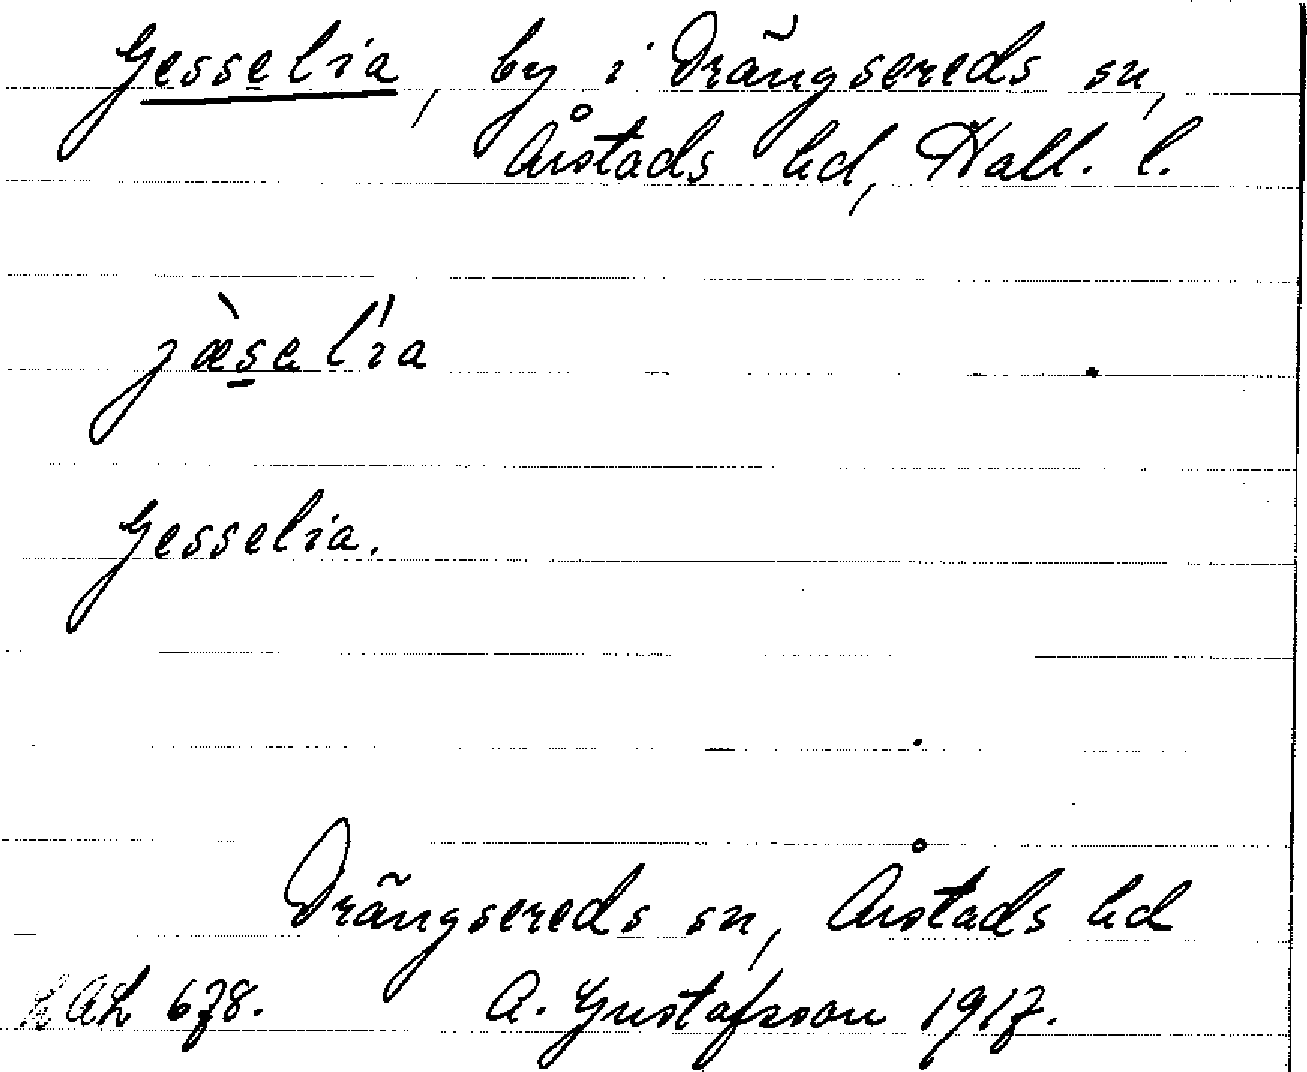 Gesselia, by i Drängsereds sn,
Årstads hd, Hall. l.
jæ̀selía
Gesselia.
Drängsereds sn, Årstads hd
LAL 678. A. Gustafsson 1917.